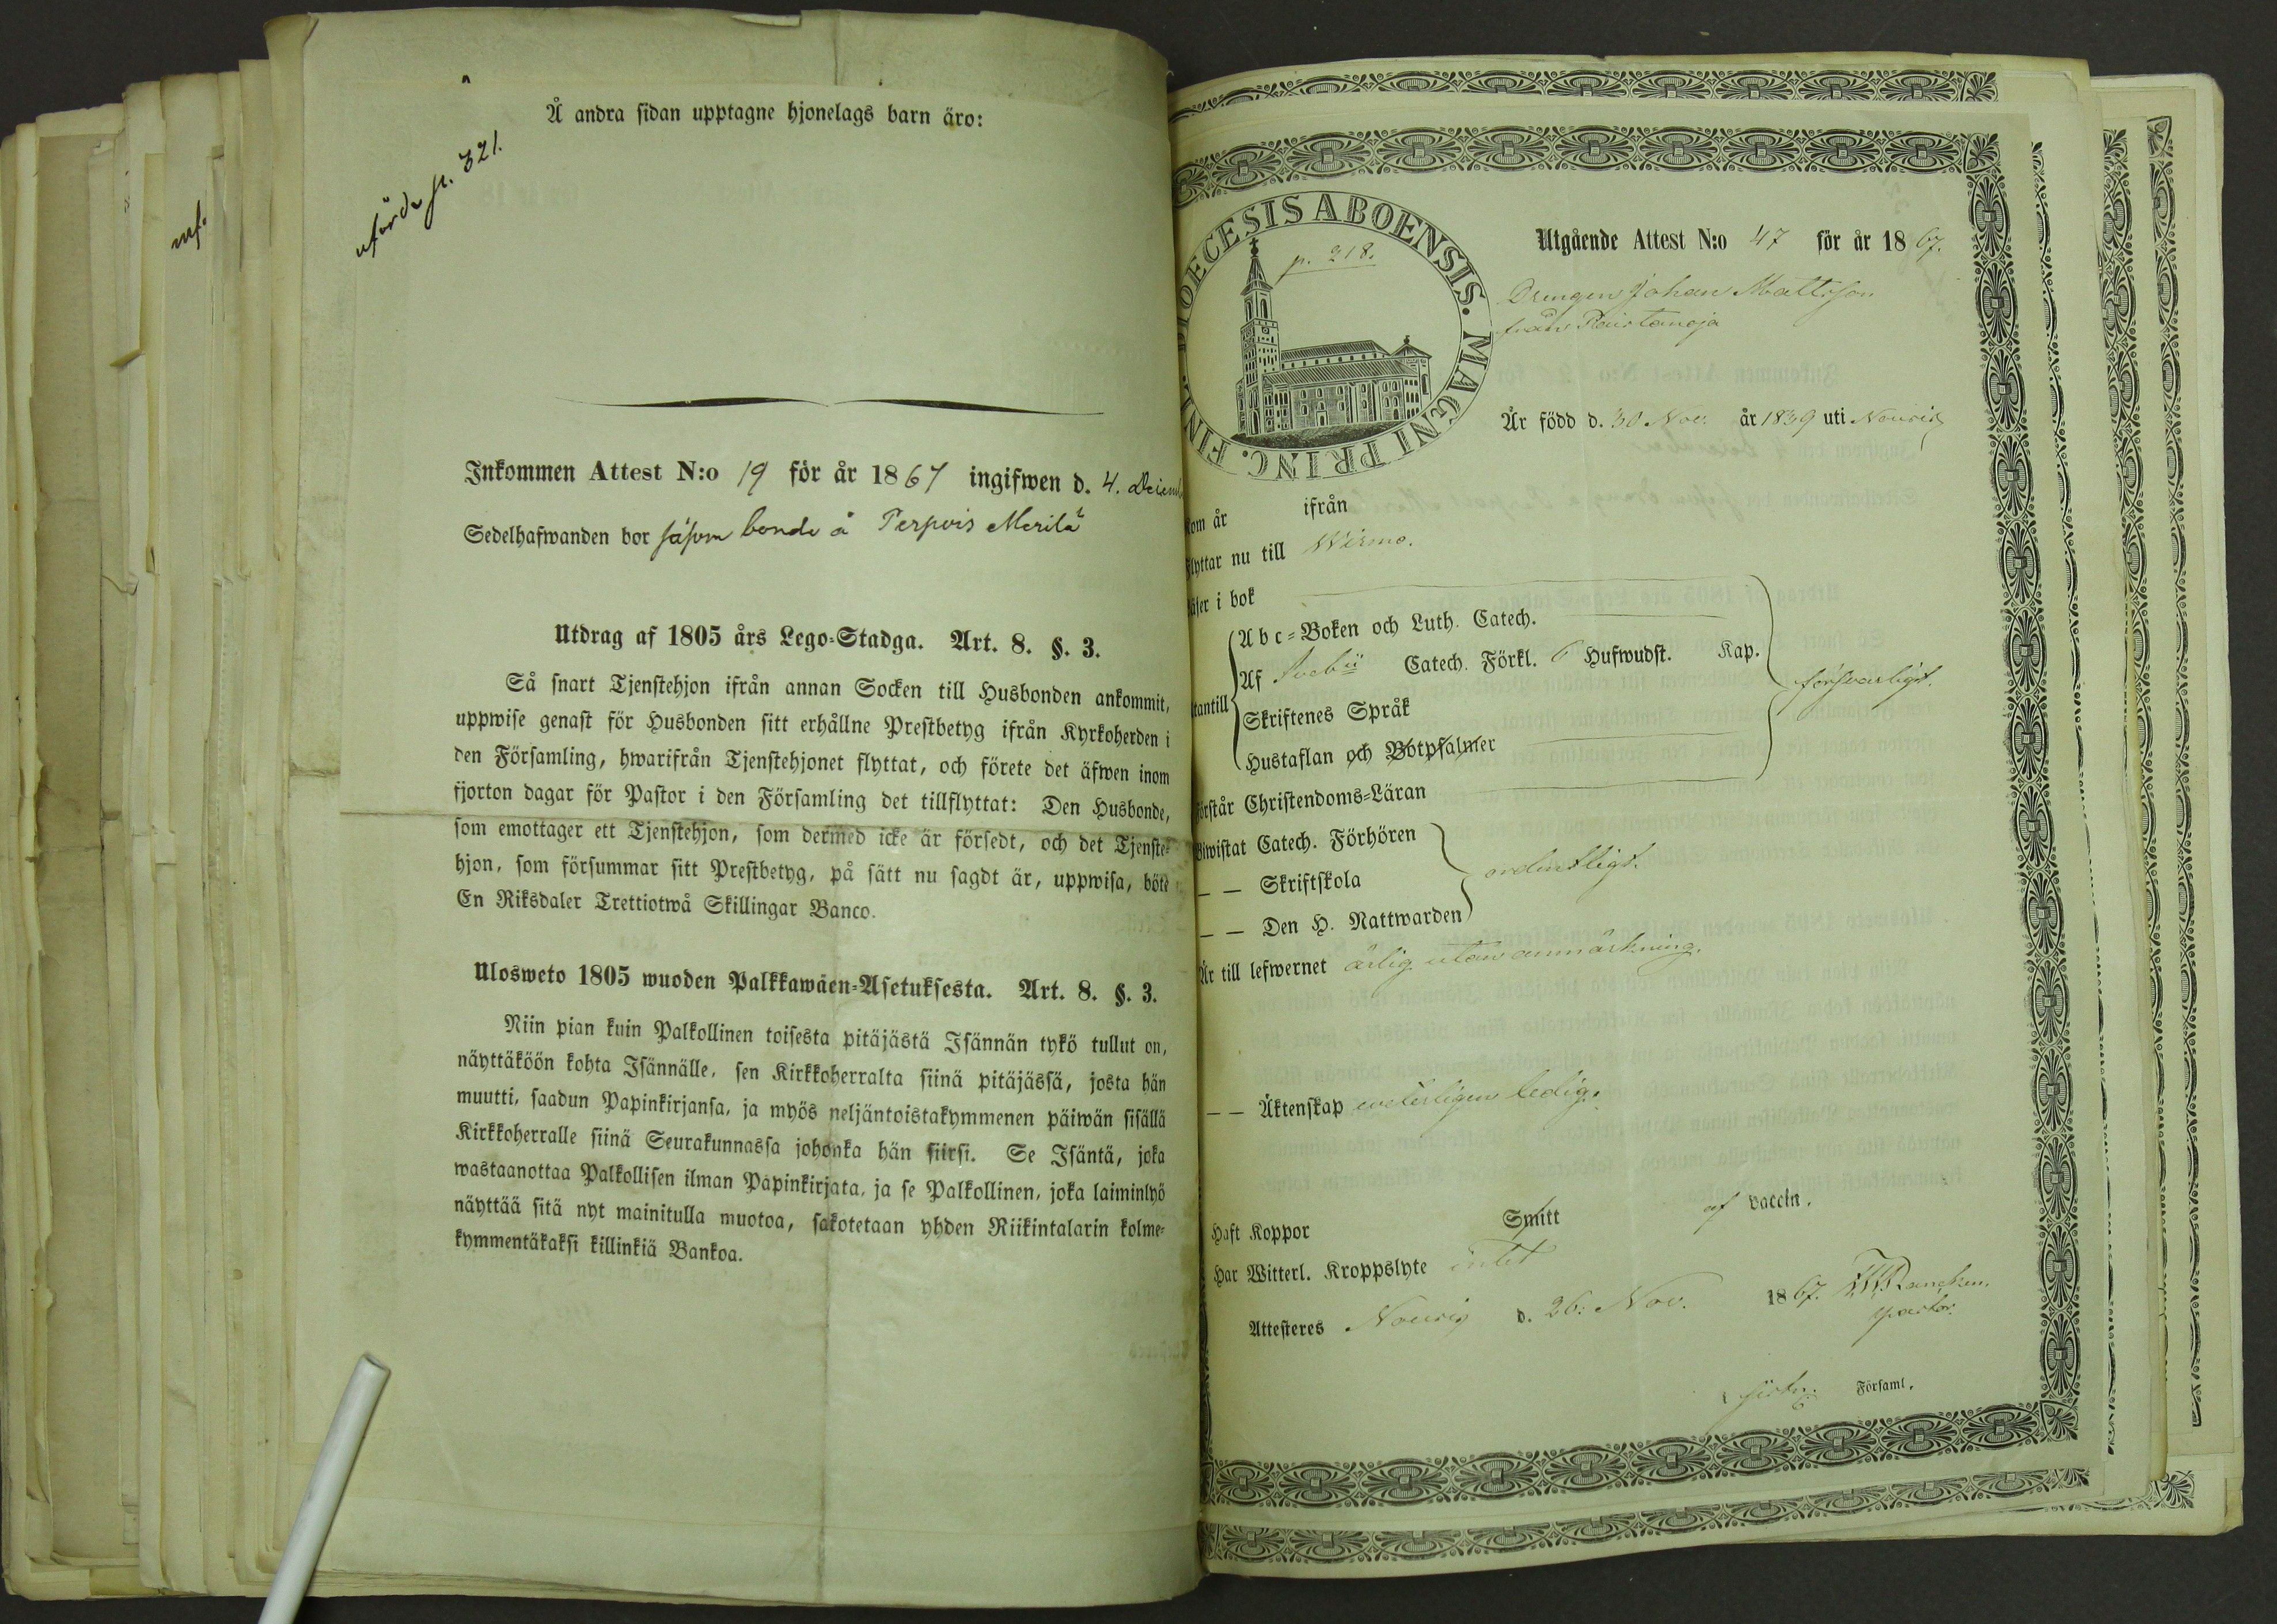 Å andra sidan upptagne hjonelags barn äro:
införde p. 321.
Inkommen Attest N:o 19 för år 1867 ingifwen d. 4. Decemb
Sedelhafwanden bor såsom bonde å Perpois Merilä
Utdrag af 1805 års Lego-Stadga. Art. 8. §. 3.
Så snart Tjenstehjon ifrån annan Socken till Husbonden ankommit,
uppwise genast för Husbonden sitt erhållne Prestbetyg ifrån Kyrkoherden i
den Församling, hwarifrån Tjenstehjonet flyttat, och förete det äfwen inom
fjorton dagar för Pastor i den Församling det tillflyttat: Den Husbonde,
som emottager ett Tjenstehjon, som dermed icke är försedt, och det Tjenste-
hjon, som försummar sitt Prestbetyg, på sätt nu sagdt är, uppwisa, böte
En Riksdaler Trettiotwå Skillingar Banco.
Ulosweto 1805 wuoden Palkkawäen-Asetuksesta. Art. 8. §. 3.
Niin pian kuin Palkollinen toisesta pitäjästä Isännän tykö tullut on,
näyttäköön kohta Isännälle, sen Kirkkoherralta siinä pitäjässä, josta hän
muutti, saadun Papinkirjansa, ja myös neljäntoistakymmenen päiwän sisällä
Kirkkoherralle siinä Seurakunnassa johonka hän siirsi. Se Isäntä, joka
wastaanottaa Palkollisen ilman Papinkirjata, ja se Palkollinen, joka laiminlyö
näyttää sitä nyt mainitulla muotoa, sakotetaan yhden Riikintalarin kolme-
kymmentäkaksi killinkiä Bankoa.
mf.
DIOECESIS ABOENSIS. MAGNI PRINC. FINL.
p. 218.
Utgående Attest N:o 47 för år 1867.
Drengen Johan Mattsson
från Paistanoja
Är född d. 30 Nov. år 1839 uti Nousis
Kom år ifrån
Flyttar nu till Wirmo.
Läser i bok
Abc-Boken och Luth. Catech.
Utantill Af Svebii Catech. Förkl. 6 Hufwudst. Kap. försvarligt.
Skriftenes Språk
Hustaflan och Botpsalmer
Förstår Christendoms-Läran
Biwistat Catech. Förhören
— — Skriftskola ordentligt.
— — Den H. Nattwarden
Är till lefwernet ärlig utan anmärkning.
— — Äktenskap veterligen ledig.
Haft Koppor Smitt af vaccin.
Har Witterl. Kroppslyte intet
Attesteres Nousis d. 26: Nov. 1867.
pastor.
Församl.